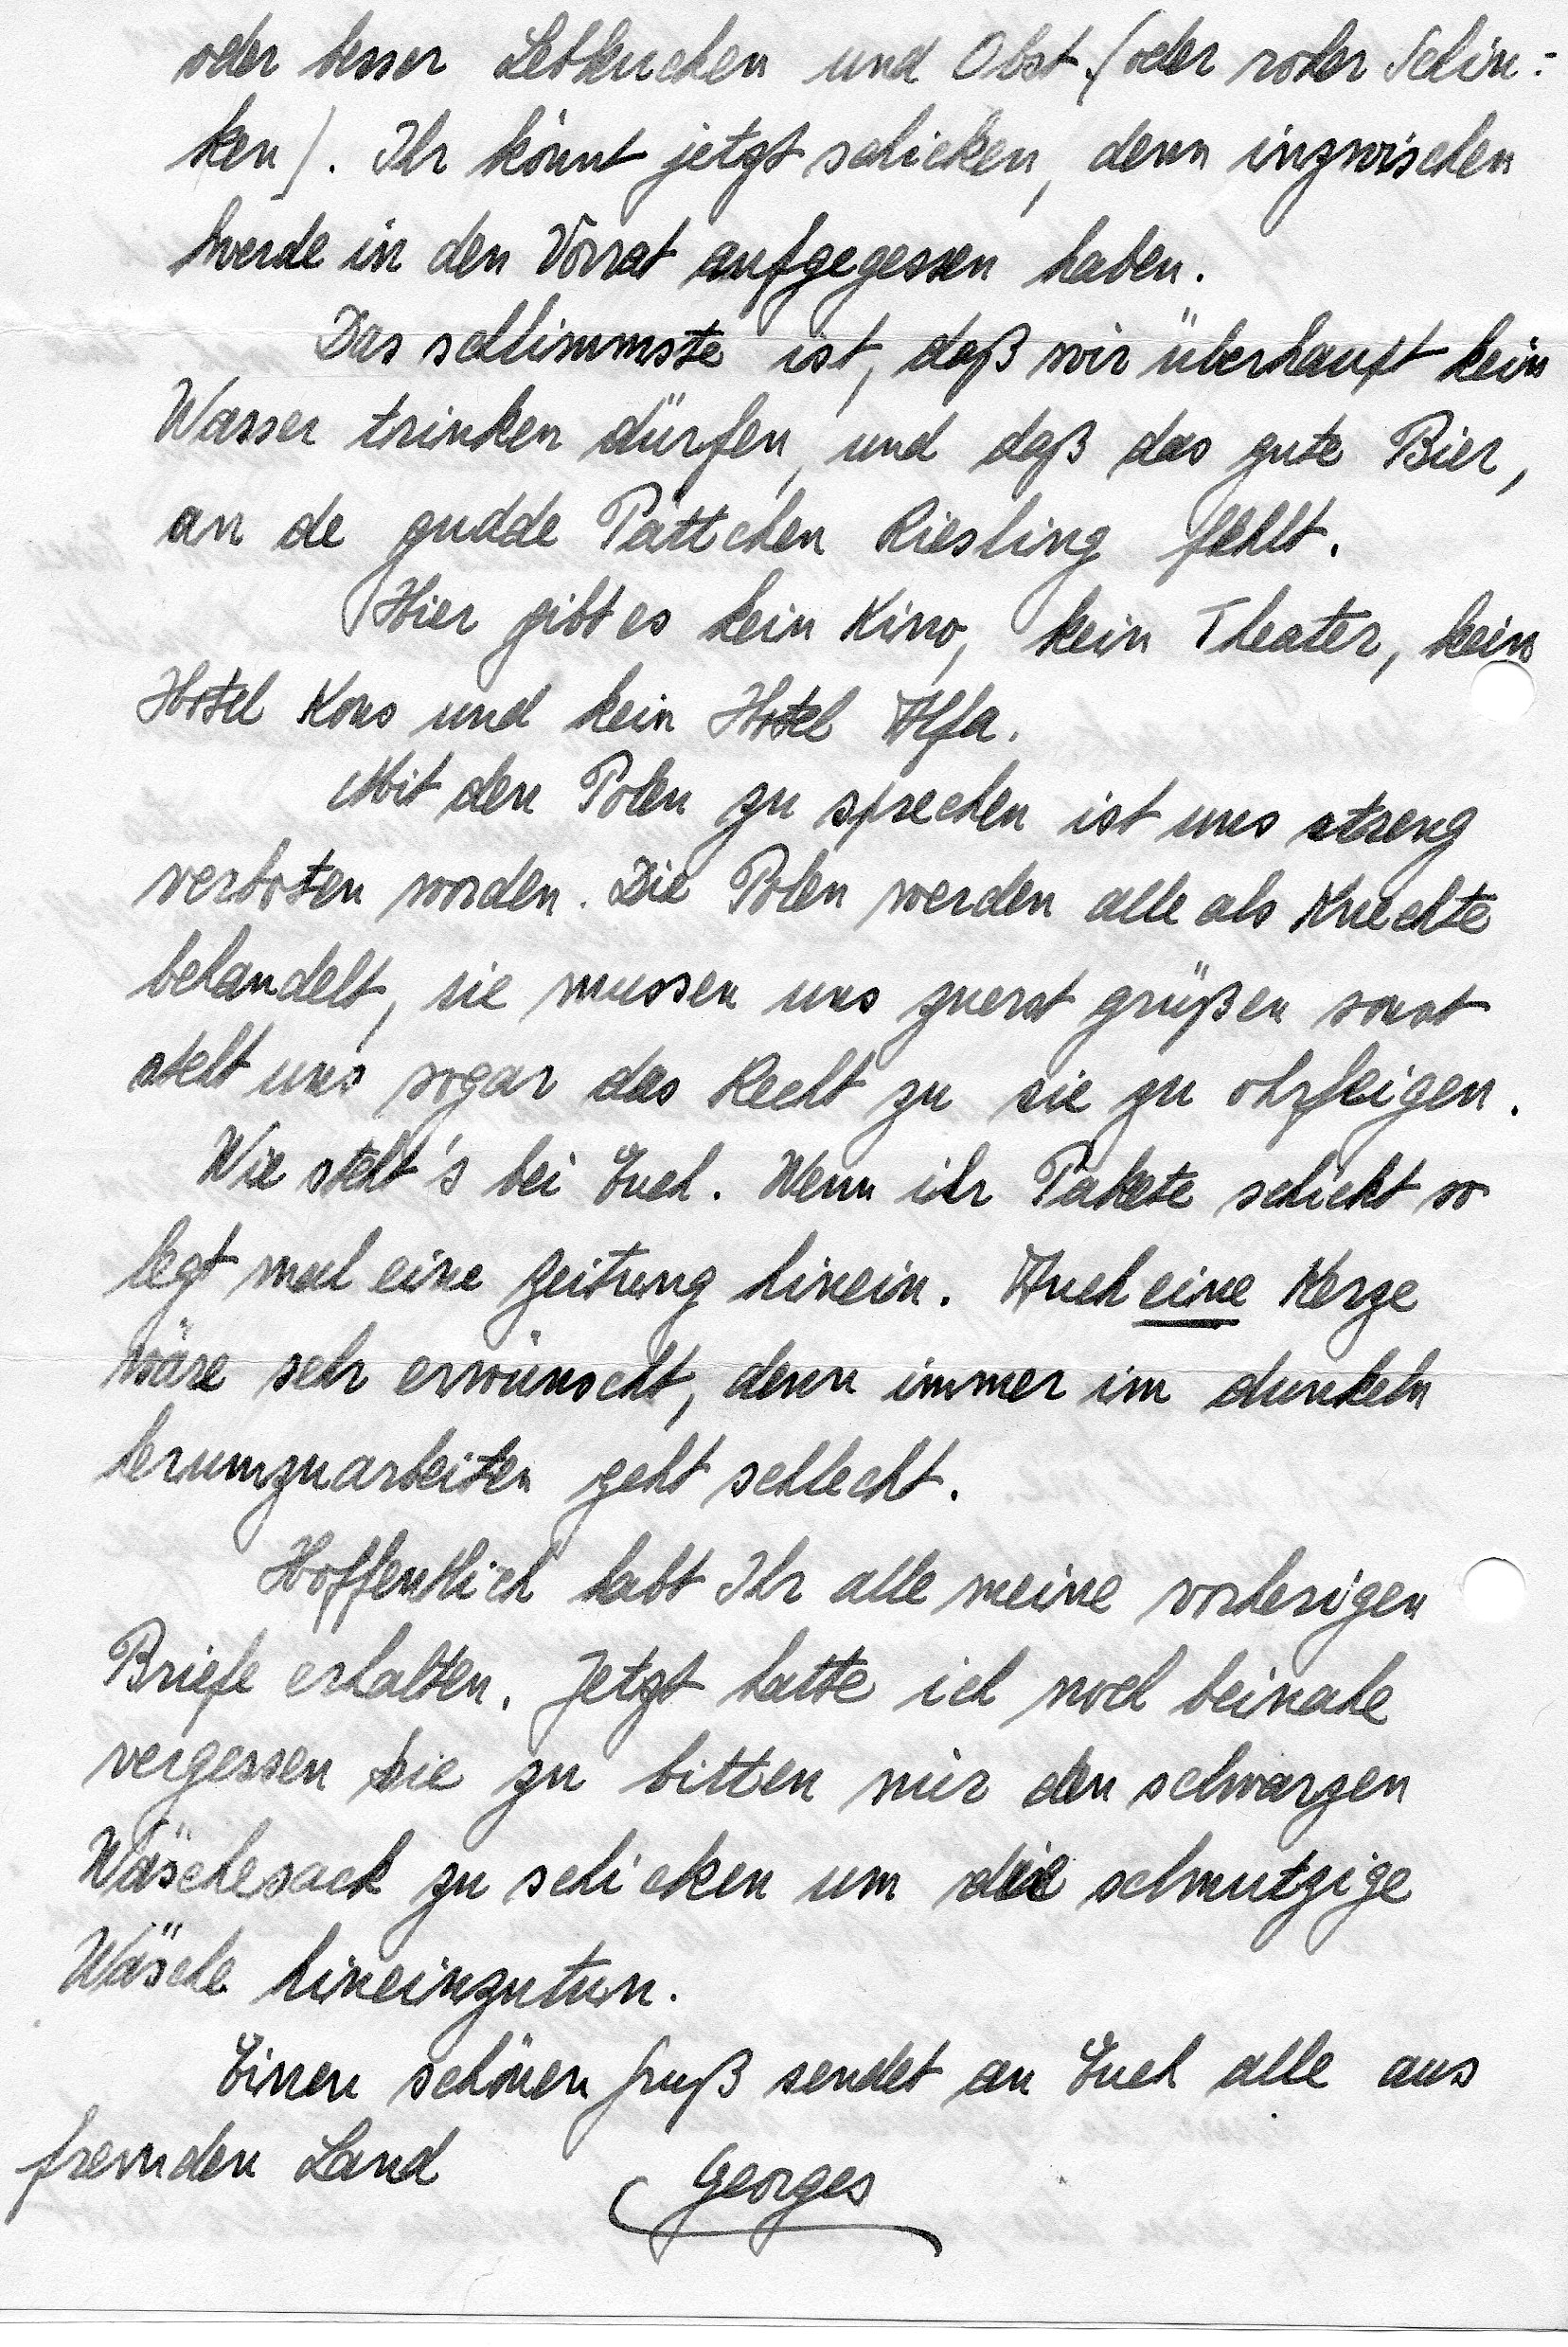 oder besser Lebkuchen und Obst. (oder roher Schin=
ken). Ihr könnt jetzt schicken, denn inzwischen
werde in den Vorrat aufgegessen haben.
Das schlimmste ist, daß wir überhaupt kein
Wasser trinken dürfen, und daß das gute Bier,
an de gudde Pättchen Riesling fehlt.
Hier gibt es kein Kino, kein Theater, kein
Hotel Kons und kein Hotel Alfa.
Mit den Polen zu sprechen ist uns streng
verboten worden. Die Polen werden alle als Knechte
behandelt, sie mussen uns zuerst grüßen sonst
steht uns sogar das Recht zu sie zu ohrfeigen.
Wie steht's bei Euch. Wenn ihr Pakete schickt so
legt mal eine Zeitung hinein. Auch eine Kerze
wäre sehr erwünscht, denn immer im dunkeln
herumzuarbeiten geht schlecht.
Hoffentlich habt Ihr alle meine vorherigen
Briefe erhalten. Jetzt hatte ich noch beinahe
vergessen Sie zu bitten mir den schwarzen
Wäschesack zu schicken um die schmutzige
Wäsche hineinzutun.
Einen schönen Gruß sendet an Euch alle aus
fremden Land
Georges